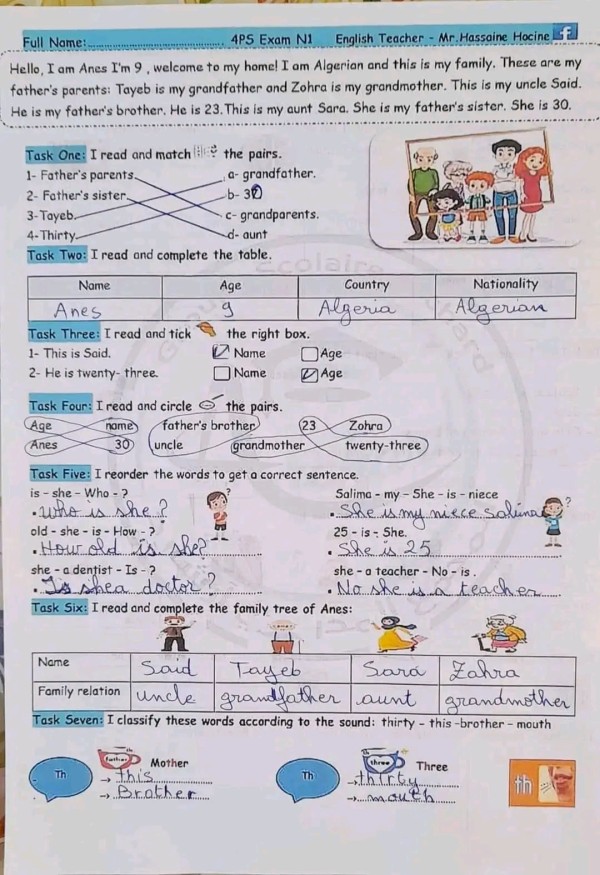 Full Name:............................................. 4PS Exam N1 English Teacher - Mr.Hassaine Hocine f
Hello, I am Anes I'm 9 , welcome to my home! I am Algerian and this is my family. These are my
father's parents: Tayeb is my grandfather and Zohra is my grandmother. This is my uncle Said.
He is my father's brother. He is 23.This is my aunt Sara. She is my father's sister. She is 30.
Task One: I read and match the pairs.
1- Father's parents. a- grandfather.
2- Father's sister. b- 30
3- Tayeb. c- grandparents.
4- Thirty. d- aunt
Task Two: I read and complete the table.
Name Age Country Nationality
Anes 9 Algeria Algerian
Task Three: I read and tick the right box.
1- This is Said. Name Age
2- He is twenty- three. Name Age
Task Four: I read and circle the pairs.
Age name father's brother 23 Zohra
Anes 30 uncle grandmother twenty-three
Task Five: I reorder the words to get a correct sentence.
is - she - Who - ? Salima - my - She - is - niece
• Who is she ? • She is my niece Salima
old - she - is - How - ? 25 - is - She.
• How old is she? • She is 25
she - a dentist - Is - ? she - a teacher - No - is .
• Is she a doctor ? • No she is a teacher
Task Six: I read and complete the family tree of Anes:
Name Said Tayeb Sara Zahra
Family relation uncle grandfather aunt grandmother
Task Seven: I classify these words according to the sound: thirty - this -brother - mouth
Th father Mother Th three Three th
→ this → thirty
→ Brother → mouth